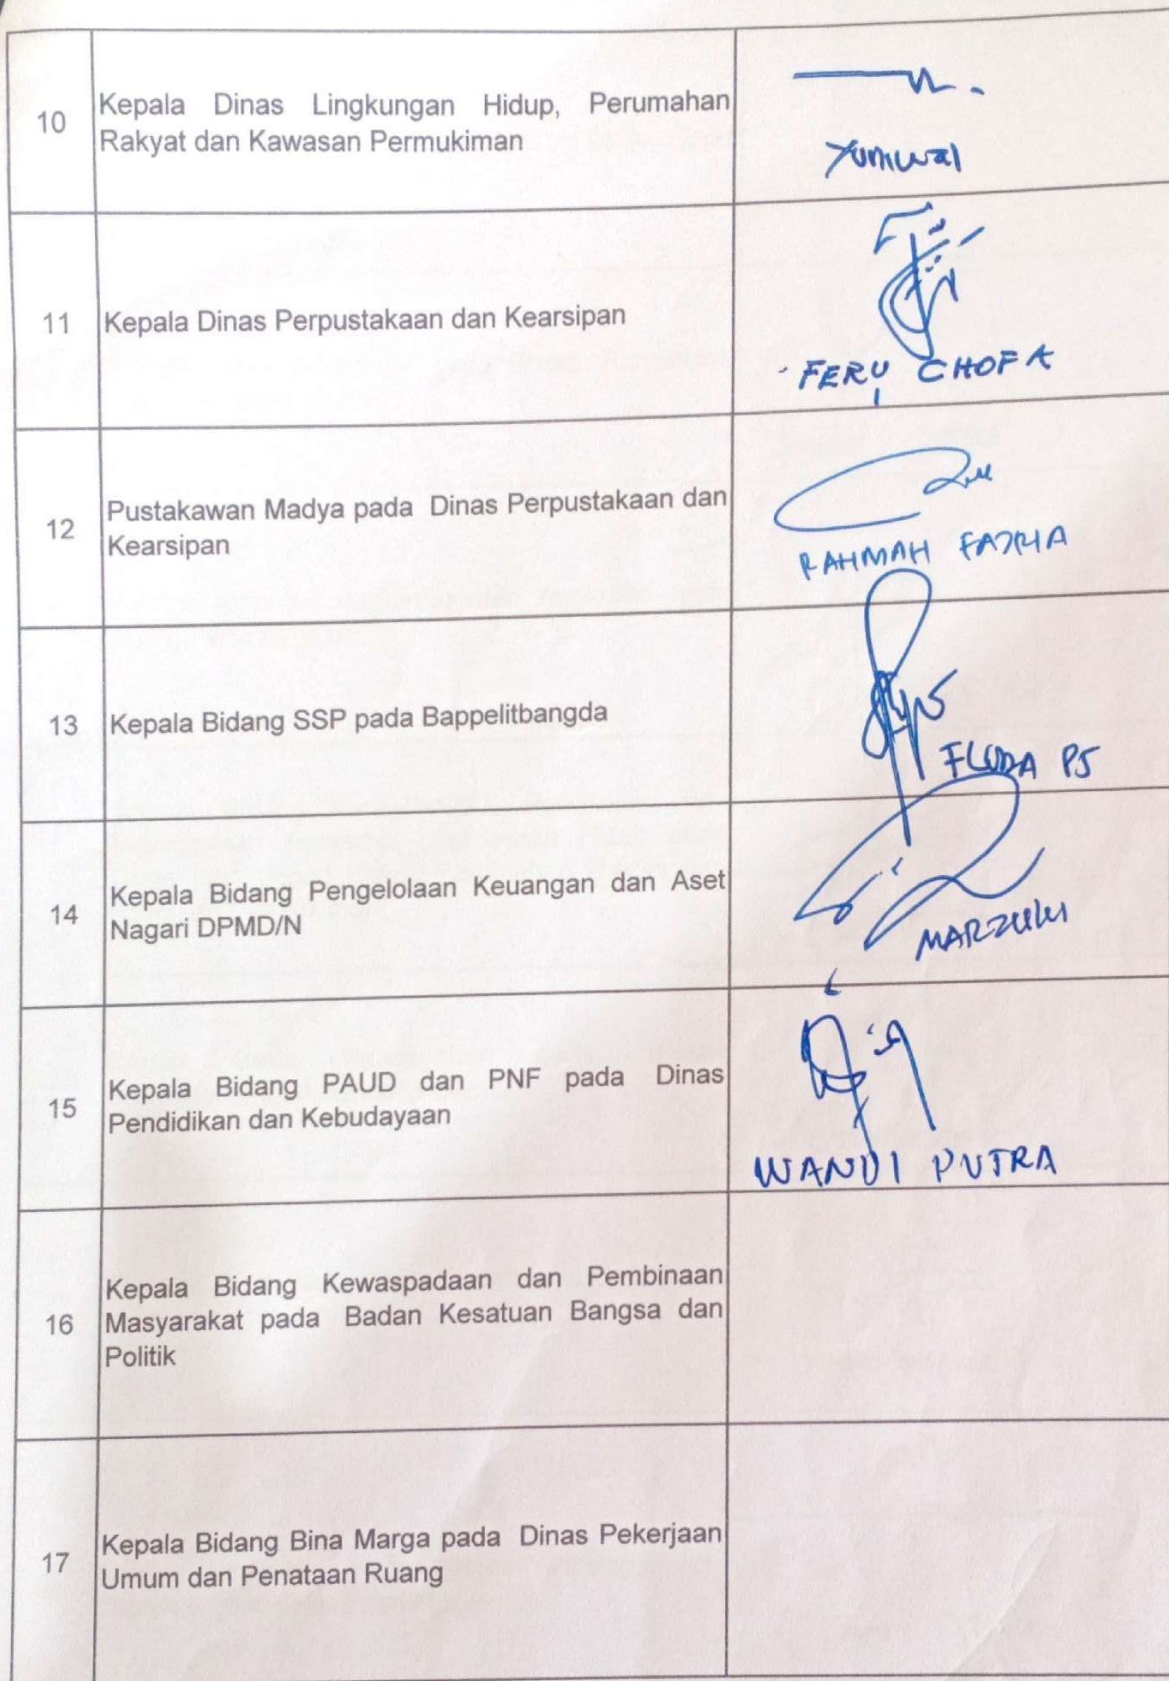 10 Kepala Dinas Lingkungan Hidup, Perumahan
Rakyat dan Kawasan Permukiman
Yumiwal
11 Kepala Dinas Perpustakaan dan Kearsipan
FERY CHOFA
12 Pustakawan Madya pada Dinas Perpustakaan dan
Kearsipan
RAHMAH FAJRIA
13 Kepala Bidang SSP pada Bappelitbangda
PS
14 Kepala Bidang Pengelolaan Keuangan dan Aset
Nagari DPMD/N
MARZUKI
15 Kepala Bidang PAUD dan PNF pada Dinas
Pendidikan dan Kebudayaan
WANDI PUTRA
16 Kepala Bidang Kewaspadaan dan Pembinaan
Masyarakat pada Badan Kesatuan Bangsa dan
Politik
17 Kepala Bidang Bina Marga pada Dinas Pekerjaan
Umum dan Penataan Ruang